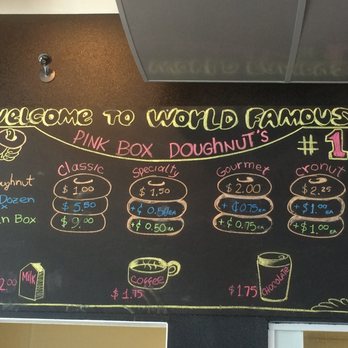 WELCOME TO WORLD FAMOUS
PINK BOX DOUGHNUT'S #1
Classic Specialty Gourmet Cronut
$1.00 $1.50 $2.00 $2.25
Dozen $5.50 +¢0.50ea +¢0.75ea +$1.00ea
Box $9.00 +0.50ea +¢0.75ea +$1.00ea
MILK COFFEE CHOCOLATE
2.00 $1.75 $1.75